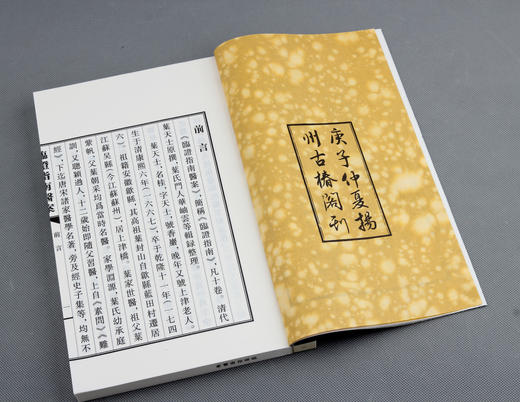 庚子仲夏揚
州古椿閣刊
前言
《臨證指南醫案》，簡稱《臨證指南》，凡十卷。清代
葉天士原撰，葉氏門人華岫雲等輯録整理。
葉天士，名桂，字天士，號香巖，晚年又號上津老人。
生于清康熙六年（一六六七），卒于乾隆十一年（一七四
六），祖籍安徽歙縣，其高祖葉封山自歙縣藍田村遷居
江蘇吴縣（今江蘇蘇州），居上津橋。葉家世醫，祖父葉
紫帆、父葉朝采均爲當時名醫，家學淵源，葉氏幼承庭
訓，又聰穎過人，十二歲始即隨父習醫，上自《素問》《難
經》，下迄唐宋諸家醫學名著，旁及經史子集等，均無不
臨證指南醫案
前言
一